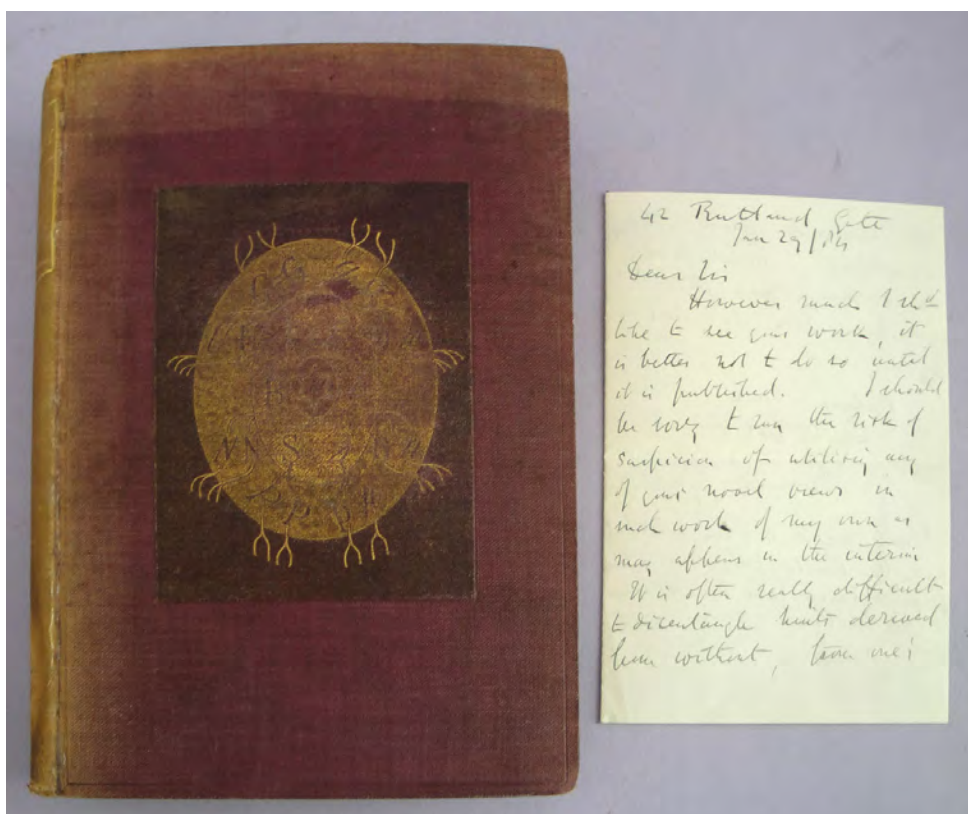 42 Rutland Gate
Jan 29/84
Dear Sir
However much I shd
like to see your work, it
is better not to do so until
it is published. I should
be sorry to run the risk of
suspicion of utilising any
of your novel views in
such work of my own as
may appear in the interim
It is often really difficult
to disentangle hints derived
from without, from one's